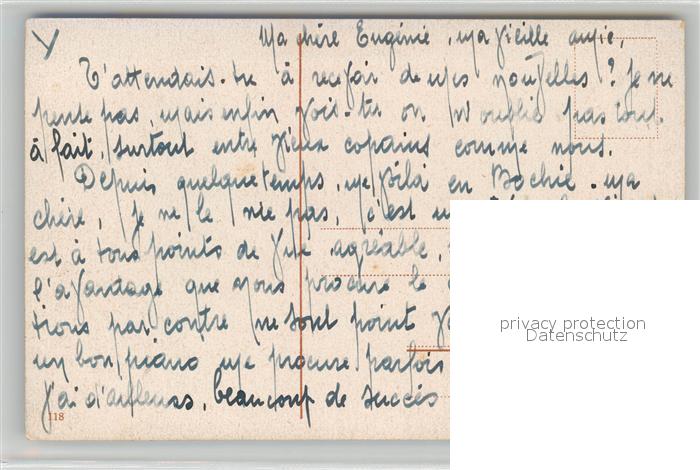 Ma chère Eugénie, ma vieille amie,
T'attendais-tu à recevoir de mes nouvelles? Je ne
pense pas, mais enfin vois-tu on n'oublie pas tout
à fait, surtout entre vieux copains comme nous.
Depuis quelque temps, me voilà en Bochie. ma
chère, je ne le nie pas, c'est
est à tous points de vue agréable,
l'avantage que nous procure le
trons par contre ne sont point
un bon piano me procure parfois
J'ai d'ailleurs, beaucoup de succès
118
privacy protection
Datenschutz